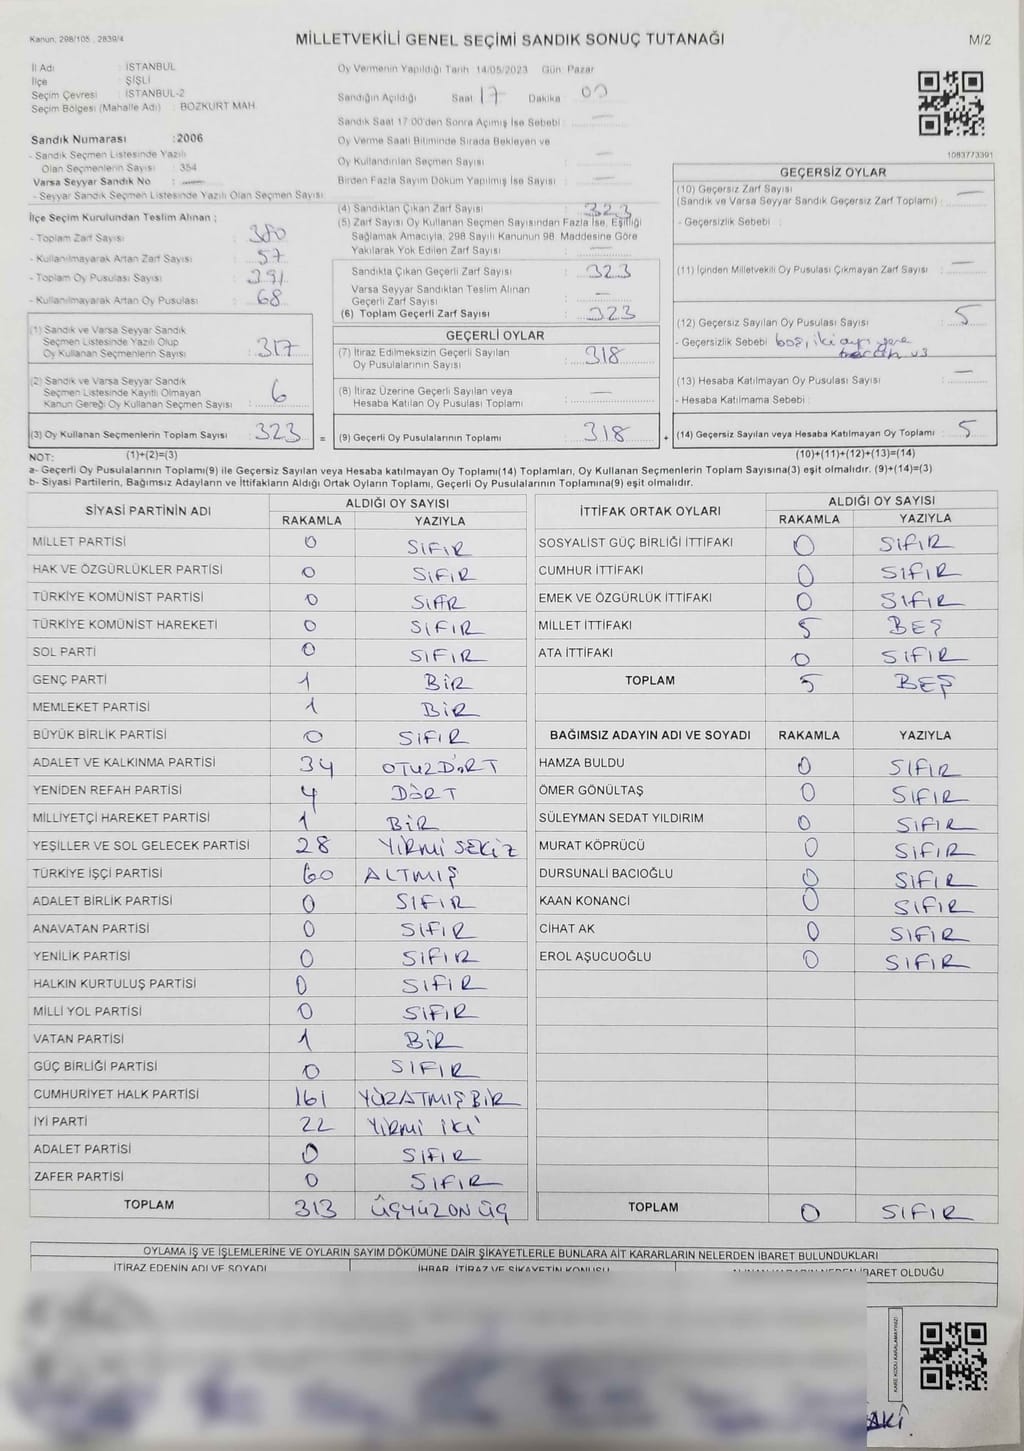 Kanun, 298/105 , 2839/4
MİLLETVEKİLİ GENEL SEÇİMİ SANDIK SONUÇ TUTANAĞI
M/2
İl Adı : İSTANBUL
İlçe : ŞİŞLİ
Seçim Çevresi : İSTANBUL-2
Seçim Bölgesi (Mahalle Adı) : BOZKURT MAH
Oy Vermenin Yapıldığı Tarih 14/05/2023 Gün Pazar
Sandığın Açıldığı Saat 17 Dakika 00
Sandık Saat 17:00'den Sonra Açılmış İse Sebebi : —
Oy Verme Saati Bitiminde Sırada Bekleyen ve
Oy Kullandırılan Seçmen Sayısı : —
Birden Fazla Sayım Döküm Yapılmış İse Sayısı : —
1083773391
Sandık Numarası :2006
- Sandık Seçmen Listesinde Yazılı
Olan Seçmenlerin Sayısı : 354
Varsa Seyyar Sandık No : —
- Seyyar Sandık Seçmen Listesinde Yazılı Olan Seçmen Sayısı
İlçe Seçim Kurulundan Teslim Alınan ;
- Toplam Zarf Sayısı : 380
- Kullanılmayarak Artan Zarf Sayısı : 57
- Toplam Oy Pusulası Sayısı : 391
- Kullanılmayarak Artan Oy Pusulası : 68
(1) Sandık ve Varsa Seyyar Sandık
Seçmen Listesinde Yazılı Olup
Oy Kullanan Seçmenlerin Sayısı : 317
(2) Sandık ve Varsa Seyyar Sandık
Seçmen Listesinde Kayıtlı Olmayan
Kanun Gereği Oy Kullanan Seçmen Sayısı : 6
(3) Oy Kullanan Seçmenlerin Toplam Sayısı : 323
(4) Sandıktan Çıkan Zarf Sayısı : 323
(5) Zarf Sayısı Oy Kullanan Seçmen Sayısından Fazla İse, Eşitliği
Sağlamak Amacıyla, 298 Sayılı Kanunun 98. Maddesine Göre
Yakılarak Yok Edilen Zarf Sayısı : —
Sandıkta Çıkan Geçerli Zarf Sayısı : 323
Varsa Seyyar Sandıktan Teslim Alınan
Geçerli Zarf Sayısı : —
(6) Toplam Geçerli Zarf Sayısı : 323
GEÇERLİ OYLAR
(7) İtiraz Edilmeksizin Geçerli Sayılan
Oy Pusulalarının Sayısı : 318
(8) İtiraz Üzerine Geçerli Sayılan veya
Hesaba Katılan Oy Pusulası Toplamı : —
= (9) Geçerli Oy Pusulalarının Toplamı : 318
GEÇERSİZ OYLAR
(10) Geçersiz Zarf Sayısı
(Sandık ve Varsa Seyyar Sandık Geçersiz Zarf Toplamı) : —
- Geçersizlik Sebebi :
(11) İçinden Milletvekili Oy Pusulası Çıkmayan Zarf Sayısı : —
(12) Geçersiz Sayılan Oy Pusulası Sayısı : 5
- Geçersizlik Sebebi boş, iki ayrı yere
(13) Hesaba Katılmayan Oy Pusulası Sayısı : —
- Hesaba Katılmama Sebebi :
+ (14) Geçersiz Sayılan veya Hesaba Katılmayan Oy Toplamı : 5
NOT: (1)+(2)=(3)
(10)+(11)+(12)+(13)=(14)
a- Geçerli Oy Pusulalarının Toplamı(9) ile Geçersiz Sayılan veya Hesaba katılmayan Oy Toplamı(14) Toplamları, Oy Kullanan Seçmenlerin Toplam Sayısına(3) eşit olmalıdır. (9)+(14)=(3)
b- Siyasi Partilerin, Bağımsız Adayların ve İttifakların Aldığı Ortak Oyların Toplamı, Geçerli Oy Pusulalarının Toplamına(9) eşit olmalıdır.
SİYASİ PARTİNİN ADI
ALDIĞI OY SAYISI
RAKAMLA YAZIYLA
MİLLET PARTİSİ 0 SIFIR
HAK VE ÖZGÜRLÜKLER PARTİSİ 0 SIFIR
TÜRKİYE KOMÜNİST PARTİSİ 0 SIFIR
TÜRKİYE KOMÜNİST HAREKETİ 0 SIFIR
SOL PARTİ 0 SIFIR
GENÇ PARTİ 1 BİR
MEMLEKET PARTİSİ 1 BİR
BÜYÜK BİRLİK PARTİSİ 0 SIFIR
ADALET VE KALKINMA PARTİSİ 34 OTUZDÖRT
YENİDEN REFAH PARTİSİ 4 DÖRT
MİLLİYETÇİ HAREKET PARTİSİ 1 BİR
YEŞİLLER VE SOL GELECEK PARTİSİ 28 YİRMİ SEKİZ
TÜRKİYE İŞÇİ PARTİSİ 60 ALTMIŞ
ADALET BİRLİK PARTİSİ 0 SIFIR
ANAVATAN PARTİSİ 0 SIFIR
YENİLİK PARTİSİ 0 SIFIR
HALKIN KURTULUŞ PARTİSİ 0 SIFIR
MİLLİ YOL PARTİSİ 0 SIFIR
VATAN PARTİSİ 1 BİR
GÜÇ BİRLİĞİ PARTİSİ 0 SIFIR
CUMHURİYET HALK PARTİSİ 161 YÜZATMIŞBİR
İYİ PARTİ 22 YİRMİ İKİ
ADALET PARTİSİ 0 SIFIR
ZAFER PARTİSİ 0 SIFIR
TOPLAM 313 ÜÇYÜZONÜÇ
İTTİFAK ORTAK OYLARI
ALDIĞI OY SAYISI
RAKAMLA YAZIYLA
SOSYALİST GÜÇ BİRLİĞİ İTTİFAKI 0 SIFIR
CUMHUR İTTİFAKI 0 SIFIR
EMEK VE ÖZGÜRLÜK İTTİFAKI 0 SIFIR
MİLLET İTTİFAKI 5 BEŞ
ATA İTTİFAKI 0 SIFIR
TOPLAM 5 BEŞ
BAĞIMSIZ ADAYIN ADI VE SOYADI RAKAMLA YAZIYLA
HAMZA BULDU 0 SIFIR
ÖMER GÖNÜLTAŞ 0 SIFIR
SÜLEYMAN SEDAT YILDIRIM 0 SIFIR
MURAT KÖPRÜCÜ 0 SIFIR
DURSUNALİ BACIOĞLU 0 SIFIR
KAAN KONANCİ 0 SIFIR
CİHAT AK 0 SIFIR
EROL AŞUCUOĞLU 0 SIFIR
TOPLAM 0 SIFIR
OYLAMA İŞ VE İŞLEMLERİNE VE OYLARIN SAYIM DÖKÜMÜNE DAİR ŞİKAYETLERLE BUNLARA AİT KARARLARIN NELERDEN İBARET BULUNDUKLARI
İTİRAZ EDENİN ADI VE SOYADI
İHBAR, İTİRAZ VE ŞİKAYETİN KONUSU
İBARET OLDUĞU
KARE KODU KARALAMAYINIZ!